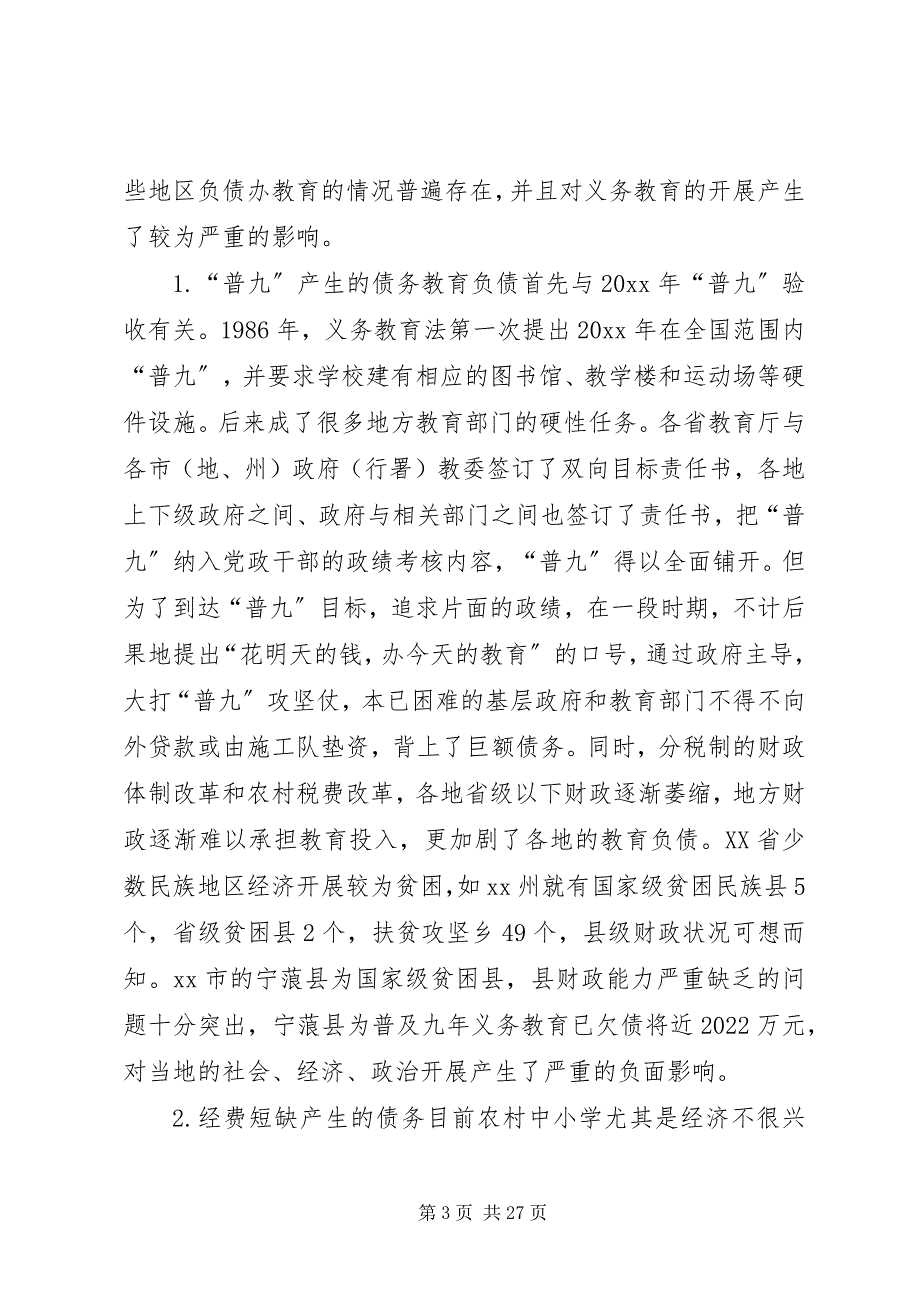 些地区负债办教育的情况普遍存在，并且对义务教育的开展产生
了较为严重的影响。
1. “普九〞产生的债务教育负债首先与 20xx 年“普九〞验
收有关。1986 年，义务教育法第一次提出 20xx 年在全国范围内
“普九〞，并要求学校建有相应的图书馆、教学楼和运动场等硬
件设施。后来成了很多地方教育部门的硬性任务。各省教育厅与
各市（地、州）政府（行署）教委签订了双向目标责任书，各地
上下级政府之间、政府与相关部门之间也签订了责任书，把“普
九〞纳入党政干部的政绩考核内容，“普九〞得以全面铺开。但
为了到达“普九〞目标，追求片面的政绩，在一段时期，不计后
果地提出“花明天的钱，办今天的教育〞的口号，通过政府主导，
大打“普九〞攻坚仗，本已困难的基层政府和教育部门不得不向
外贷款或由施工队垫资，背上了巨额债务。同时，分税制的财政
体制改革和农村税费改革，各地省级以下财政逐渐萎缩，地方财
政逐渐难以承担教育投入，更加剧了各地的教育负债。XX 省少
数民族地区经济开展较为贫困，如 xx 州就有国家级贫困民族县 5
个，省级贫困县 2 个，扶贫攻坚乡 49 个，县级财政状况可想而
知。xx 市的宁蒗县为国家级贫困县，县财政能力严重缺乏的问
题十分突出，宁蒗县为普及九年义务教育已欠债将近 2022 万元，
对当地的社会、经济、政治开展产生了严重的负面影响。
2. 经费短缺产生的债务目前农村中小学尤其是经济不很兴
第 3 页 共 27 页